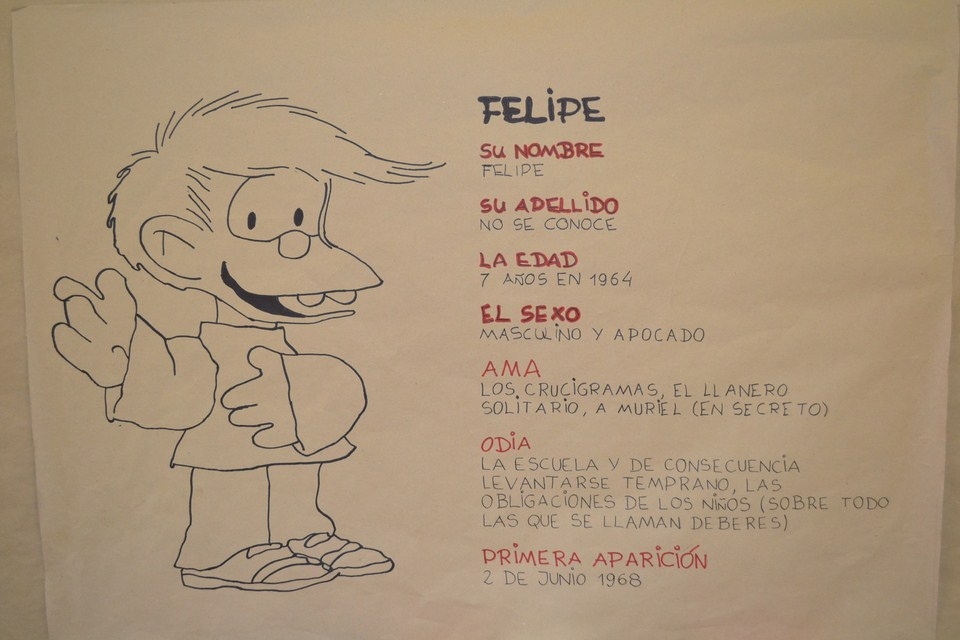 FELIPE
SU NOMBRE
FELIPE
SU APELLIDO
NO SE CONOCE
LA EDAD
7 AÑOS EN 1964
EL SEXO
MASCULINO Y APOCADO
AMA
LOS CRUCIGRAMAS, EL LLANERO
SOLITARIO, A MURIEL (EN SECRETO)
ODIA
LA ESCUELA Y DE CONSECUENCIA
LEVANTARSE TEMPRANO, LAS
OBLIGACIONES DE LOS NIÑOS (SOBRE TODO
LAS QUE SE LLAMAN DEBERES)
PRIMERA APARICIÓN
2 DE JUNIO 1968